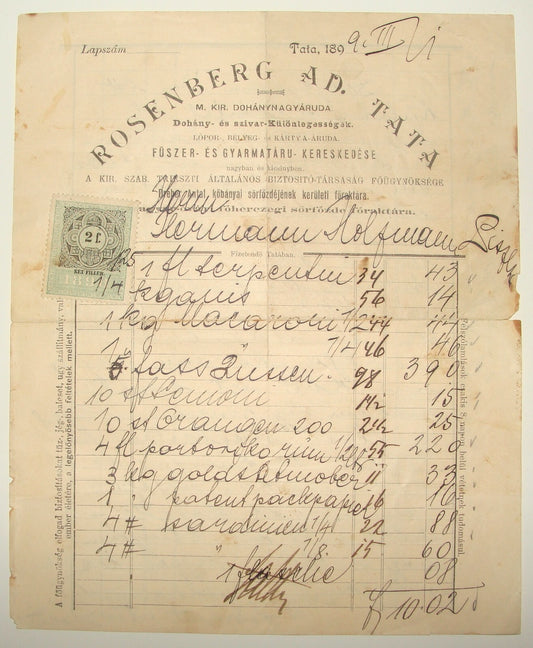 Lapszám
Tata, 189 9. III / 1
ROSENBERG AD. TATA
M. KIR. DOHÁNYNAGYÁRUDA.
Dohány- és szivar-Különlegességek.
LŐPOR-, BÉLYEG- és KÁRTYA-ÁRUDA.
FŰSZER- ÉS GYARMATÁRU- KERESKEDÉSE
nagyban és kicsinyben.
A KIR. SZAB. TRIESZTI ÁLTALÁNOS BIZTOSITÓ-TÁRSASÁG FŐÜGYNÖKSÉGE
Dreher Antal, kőbányai sörfőzdéjének kerületi főraktára.
főherczegi sörfőzde főraktára.
2 f
KÉT FILLÉR
Herrn
Hermann Hoffmann
Fizetendő Tatában.
1/25 1 fl terpentin 34 43
1/4 kg anis 56 14
1 kg Macaroni 1/2 44 44
1 " 1/4 46 46
5 98 390
10 st 1 1/2 15
10 st Orangen 200 2 1/2 25
4 fl 55 220
3 kg 11 33
1 " patent packpapier 16 16
4 # sardinien 1/4 22 88
4 # " 1/8 15 60
1 08
f 10.02
A főügynökség elfogad biztosításokat tűz, jég, baleset, úgy szállítmány, val
ember életére, a legelőnyösebb feltételek mellett.
Felszólamlások csakis 8 napon belül vétetnek tudomásul.